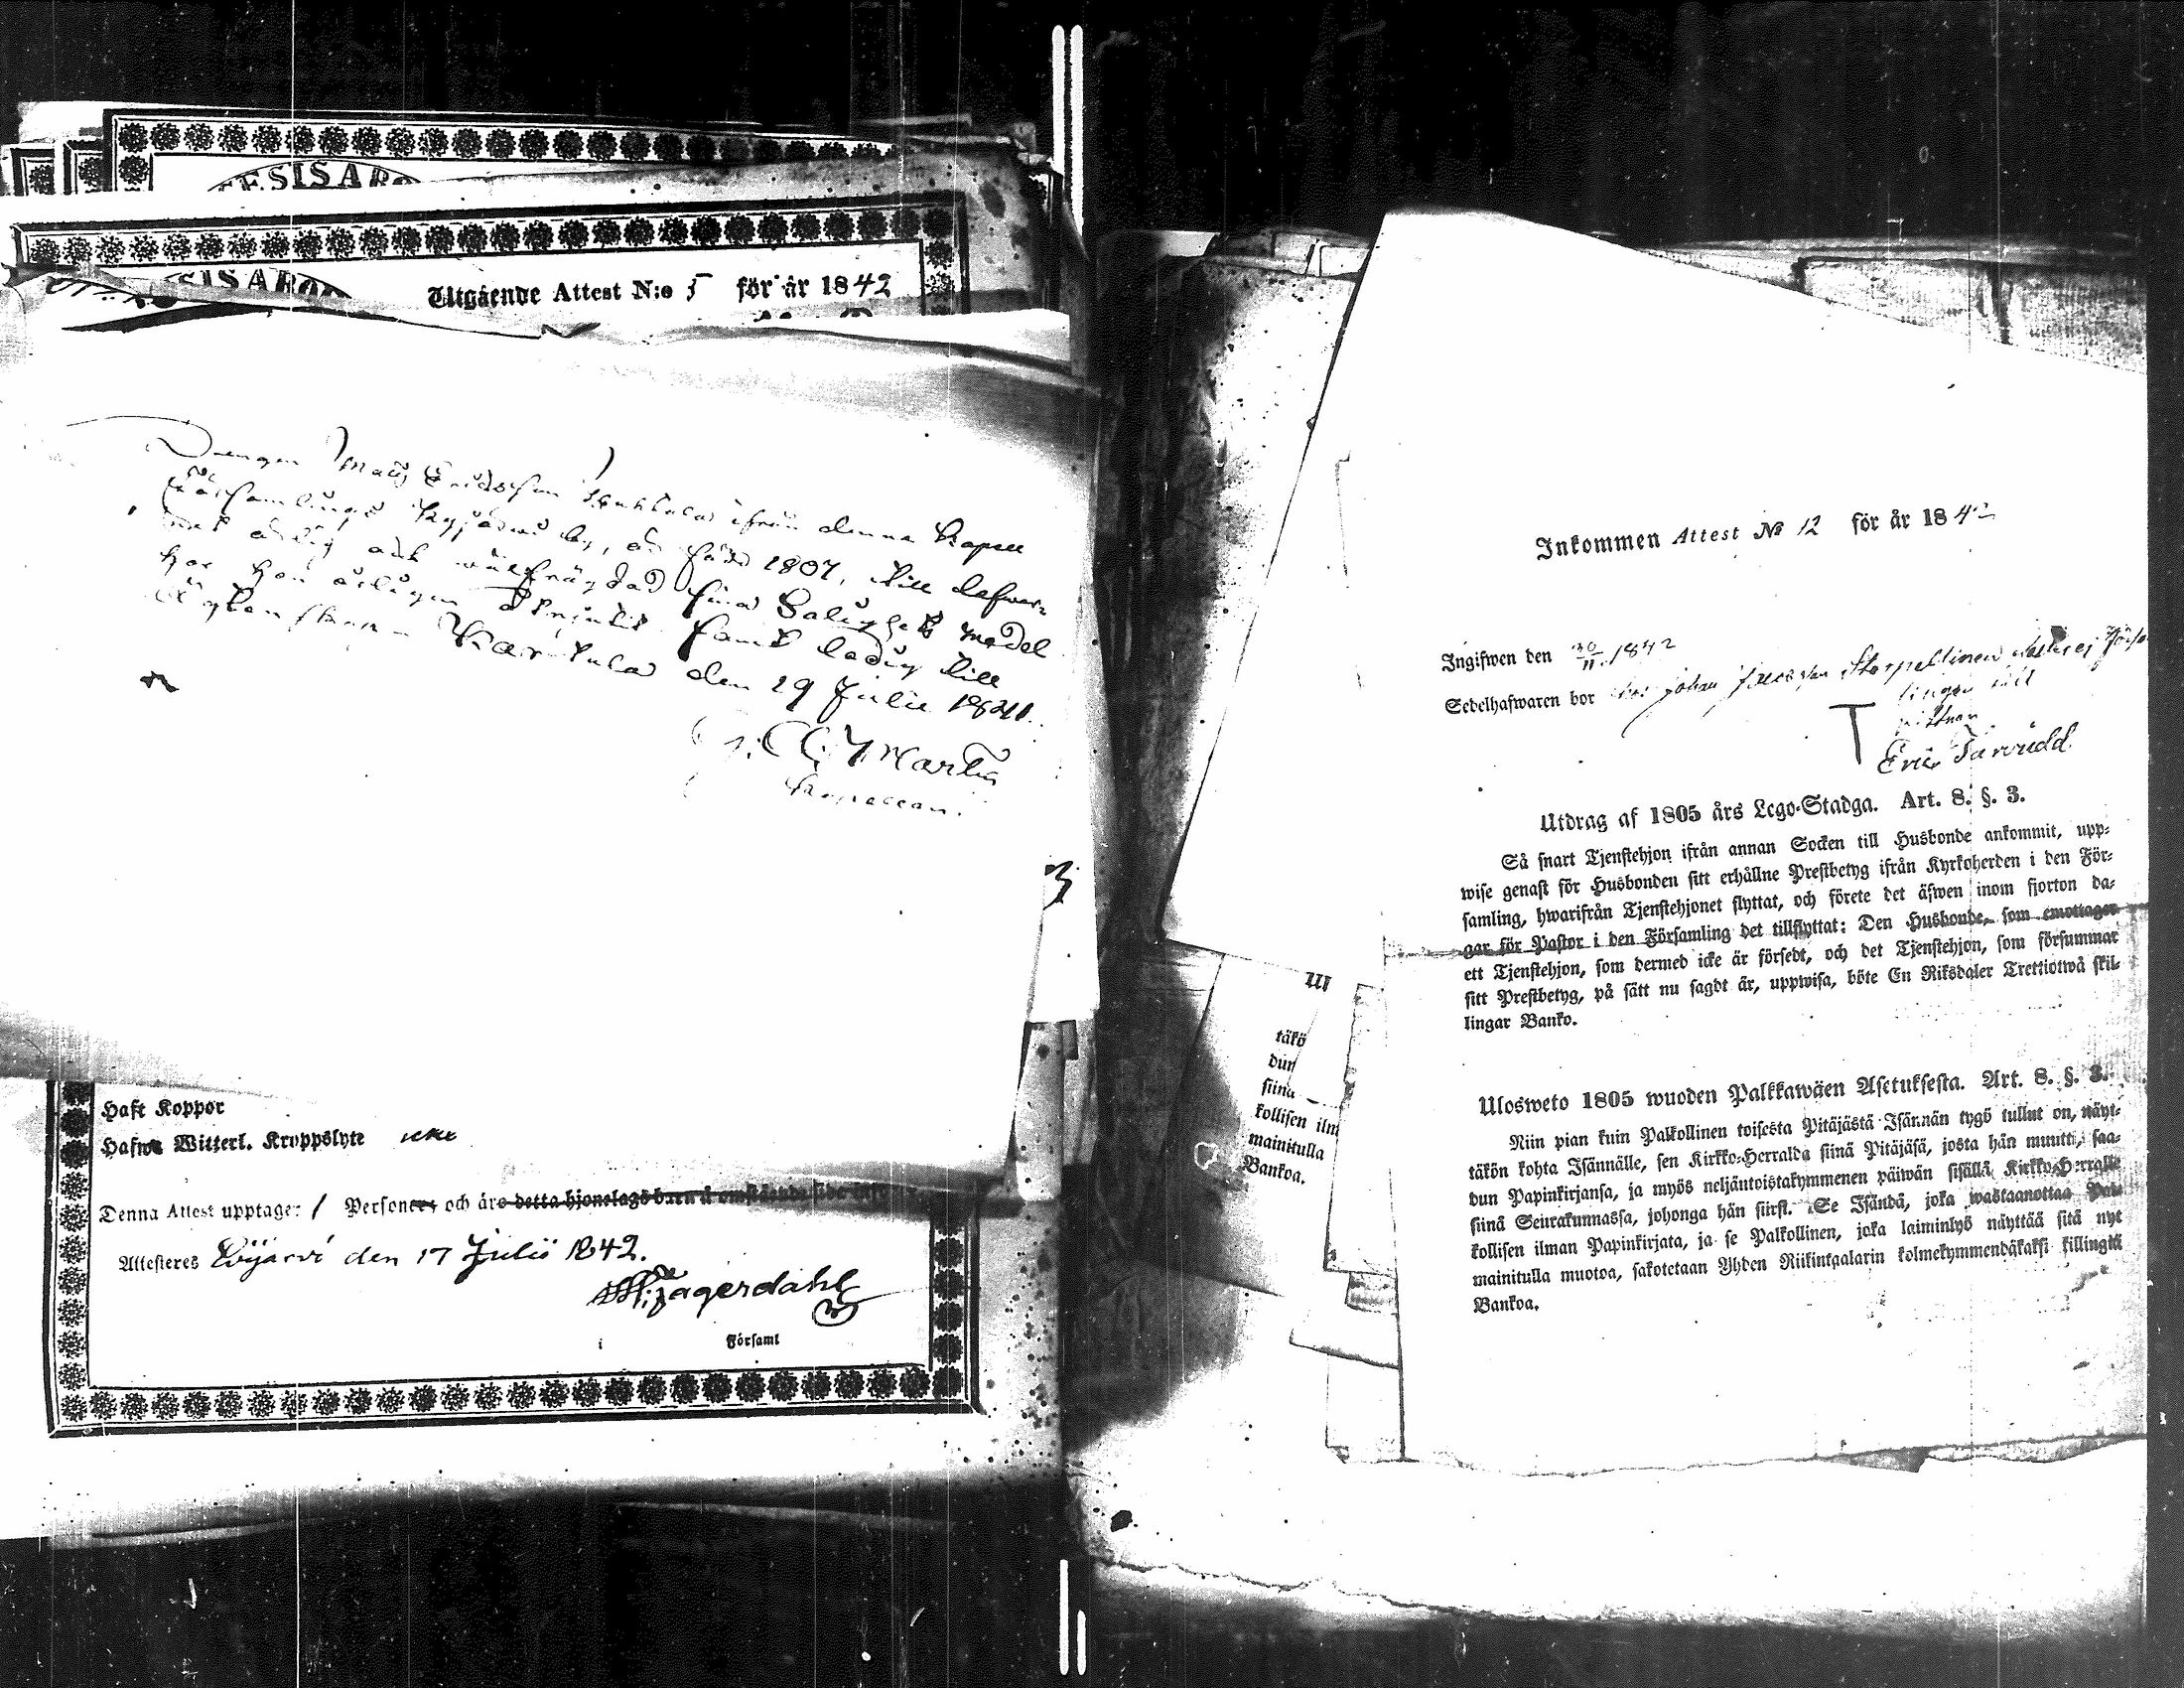 Utgående Attest N:o 5 för år 1842
Drengen Matts Ericksson ifrån denna Capell
Församlings by, är född 1807, till lefver-
net ärlig och wälfrägdad sina Salighets medel
har han årligen samt ledig till
Ägtenskap. Karstula den 29 Julii 1841.
Capellan.
3
Haft Koppor
Hafwe Witterl. Kroppslyte icke
Denna Attest upptager 1 Personer och äro detta hjonelags barn å omstående sida
Attesteras den 17 Julii 1842.
Jägerdahl
i Församl
Inkommen Attest No 12 för år 1842
Ingifwen den 30/11 1842
Sedelhafwaren bor hos Johan
Eric
Utdrag af 1805 års Lego-Stadga. Art. 8. §. 3.
Så snart Tjenstehjon ifrån annan Socken till Husbonde ankommit, upp-
wise genast för Husbonden sitt erhållne Prestbetyg ifrån Kyrkoherden i den För-
samling, hwarifrån Tjenstehjonet flyttat, och förete det äfwen inom fjorton da-
gar för Pastor i den Församling det tillflyttat: Den Husbonde, som emottager
ett Tjenstehjon, som dermed icke är försedt, och det Tjenstehjon, som försummar
sitt Prestbetyg, på sätt nu sagdt är, uppwisa, böte En Riksdaler Trettiotwå skil-
lingar Banko.
Ulosweto 1805 wuoden Palkkawäen Asetuksesta. Art. 8. §. 3.
Niin pian kuin Palkollinen toisesta Pitäjästä Isännän tygö tullut on, näyt-
täkön kohta Isännälle, sen Kirkko-Herralda siinä Pitäjäsä, josta hän muutti, saa-
dun Papinkirjansa, ja myös neljäntoistakymmenen päiwän sisällä Kirkko-Herralle
siinä Seurakunnassa, johonga hän siirsi. Se Isändä, joka wastaanottaa Pal-
kollisen ilman Papinkirjata, ja se Palkollinen, joka laiminlyö näyttää sitä nyt
mainitulla muotoa, sakotetaan Yhden Riikintaalarin kolmekymmendäkaksi killingiä
Bankoa.
täkö
dun
siinä
kollisen ilm
mainitulla
Bankoa.